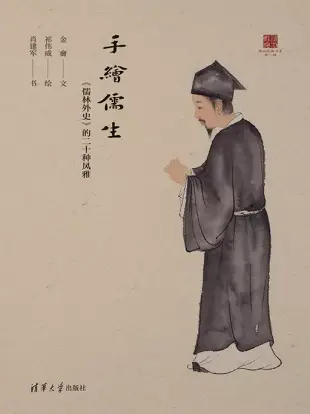 手繪儒生
《儒林外史》的二十种风雅
金鑫——文
祁伟威——绘
肖建军——书
清華大学出版社